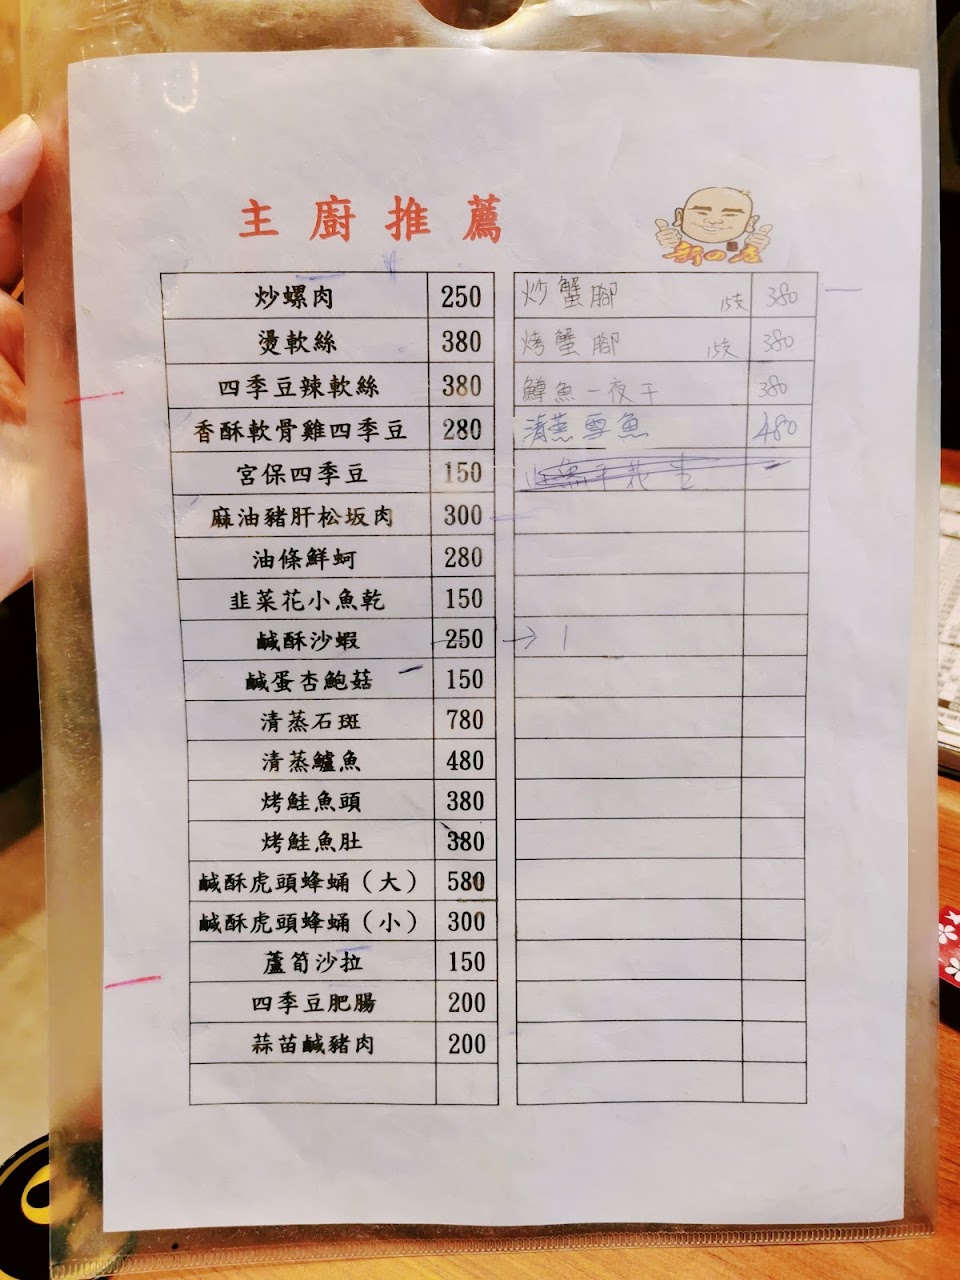 主廚推薦
新の店
炒螺肉 250
燙軟絲 380
四季豆辣軟絲 380
香酥軟骨雞四季豆 280
宮保四季豆 150
麻油豬肝松坂肉 300
油條鮮蚵 280
韭菜花小魚乾 150
鹹酥沙蝦 250 → 1
鹹蛋杏鮑菇 150
清蒸石斑 780
清蒸鱸魚 480
烤鮭魚頭 380
烤鮭魚肚 380
鹹酥虎頭蜂蛹（大） 580
鹹酥虎頭蜂蛹（小） 300
蘆筍沙拉 150
四季豆肥腸 200
蒜苗鹹豬肉 200
炒蟹腳 15支 380
烤蟹腳 15支 380
鱈魚一夜干 380
清蒸雪魚 480